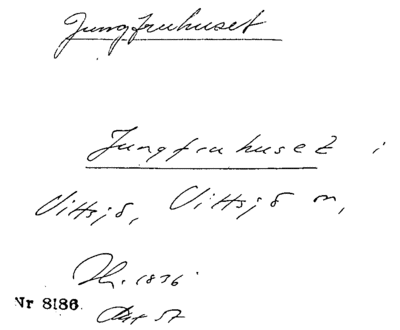 Jungfruhuset
Jungfruhuset i
Vittsjö, Vittsjö sn,
1836
Nr 8186